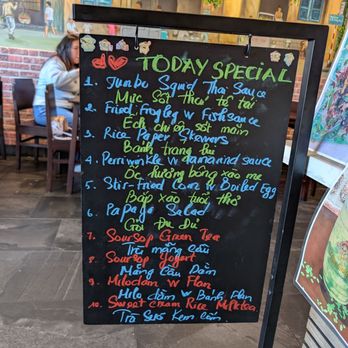 TODAY SPECIAL
1. Jumbo Squid Thai Sauce
Mực sốt Thái tổ tái
2. Fried Frogleg w Fishsauce
Ếch chiên sốt mắm
3. Rice Paper Skewers
Bánh tráng
4. Perriwinkle w tamarind sauce
Ốc hương bỏng xào me
5. Stir-fried Corn w Boiled Egg
Bắp xào tuổi thơ
6. Papaya Salad
Gỏi Đu Đủ
7. Soursop Green Tea
Trà mãng cầu
8. Soursop Yogurt
Mãng Cầu Dầm
9. Milodam w Flan
Milo dầm w Bánh Flan
10. Sweet cream Rice Milktea
Trà Sữa Kem